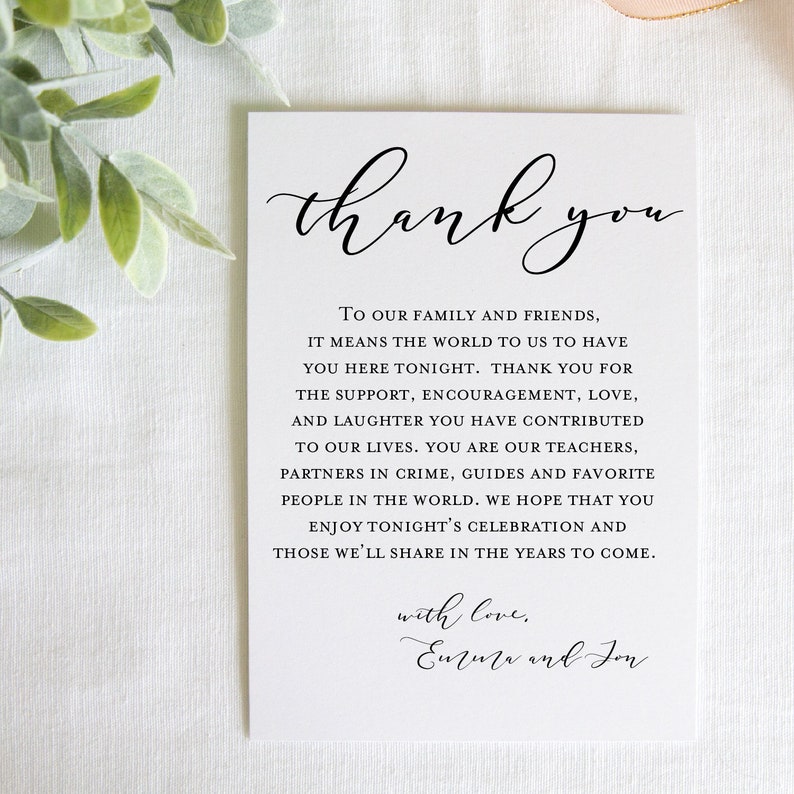 thank you
To our family and friends,
it means the world to us to have
you here tonight. thank you for
the support, encouragement, love,
and laughter you have contributed
to our lives. you are our teachers,
partners in crime, guides and favorite
people in the world. we hope that you
enjoy tonight's celebration and
those we'll share in the years to come.
with love,
Emma and Jon